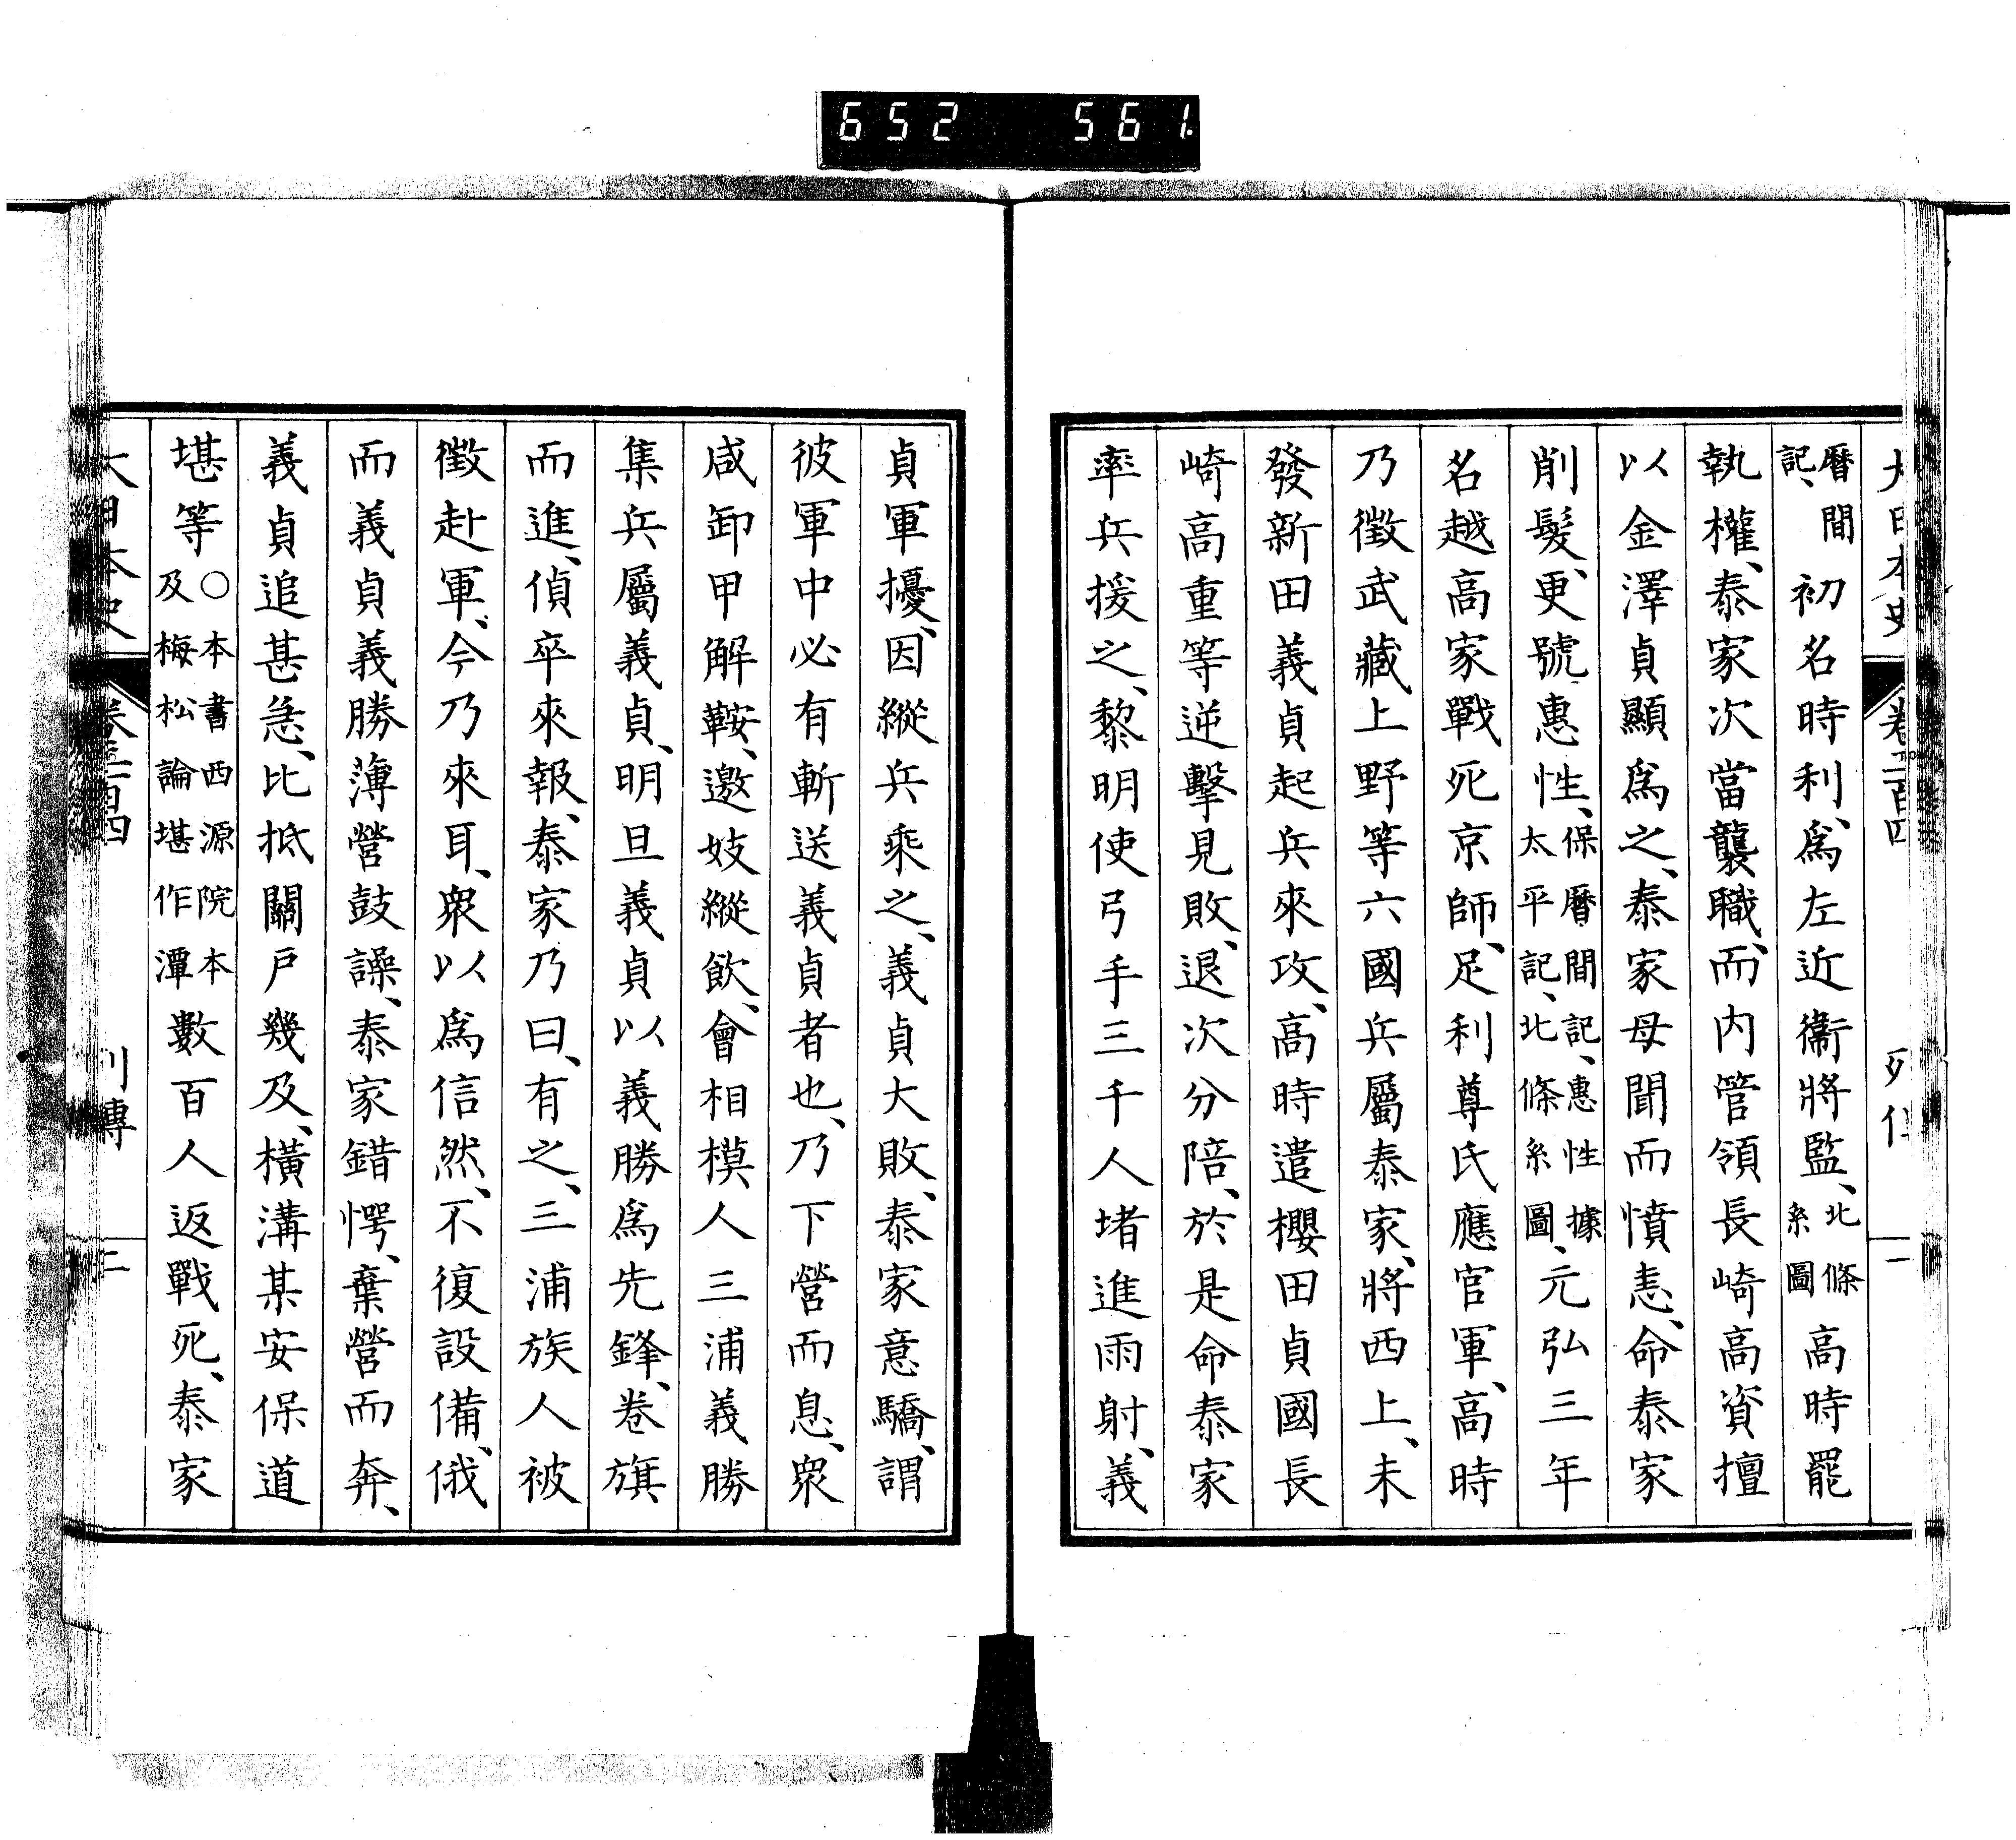 652 561.
大日本史 卷二百四 列傳 二
曆間記、初名時利、爲左近衞將監、北條系圖高時罷
執權、泰家次當襲職、而内管領長崎高資擅
以金澤貞顯爲之、泰家母聞而憤恚、命泰家
削髮、更號惠性、保曆間記、惠性據太平記、北條系圖、元弘三年
名越高家戰死京師、足利尊氏應官軍、高時
乃徵武藏上野等六國兵屬泰家、將西上、未
發新田義貞起兵來攻、高時遣櫻田貞國長
崎高重等逆擊見敗、退次分陪、於是命泰家
率兵援之、黎明使弓手三千人堵進雨射、義
貞軍擾、因縱兵乘之、義貞大敗、泰家意驕、謂
彼軍中必有斬送義貞者也、乃下營而息、衆
咸卸甲解鞍、邀妓縱飲、會相模人三浦義勝
集兵屬義貞、明旦義貞以義勝爲先鋒、卷旗
而進、偵卒來報、泰家乃曰、有之、三浦族人被
徵赴軍、今乃來耳、衆以爲信然、不復設備、俄
而義貞義勝薄營鼓譟、泰家錯愕、棄營而奔、
義貞追甚急、比抵關戶幾及、橫溝某安保道
堪等〇本書西源院本及梅松論堪作潭數百人返戰死、泰家
大日本史 卷二百四 列傳 三